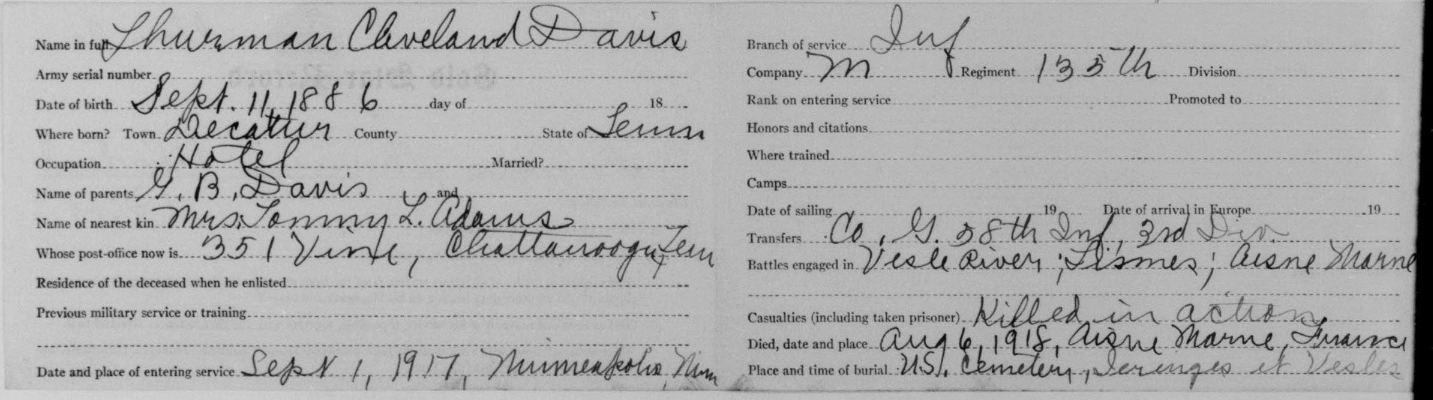 Name in full Thurman Cleveland Davis
Army serial number
Date of birth Sept. 11, 1886 day of 18
Where born? Town Decattur County State of Tenn
Occupation Hotel Married?
Name of parents G. B. Davis and
Name of nearest kin Mrs. Tommy L. Adams
Whose post-office now is 351 Vine, Chattanooga, Tenn
Residence of the deceased when he enlisted
Previous military service or training
Date and place of entering service Sept 1, 1917, Minneapolis, Minn
Branch of service Inf
Company M Regiment 135th Division
Rank on entering service Promoted to
Honors and citations
Where trained
Camps
Date of sailing 19 Date of arrival in Europe 19
Transfers Co. G. 38th Inf., 3rd Div.
Battles engaged in Vesle River; Fismes; Aisne Marne
Casualties (including taken prisoner) Killed in action
Died, date and place Aug 6, 1918, Aisne Marne, France
Place and time of burial U.S. Cemetery, et Vesles